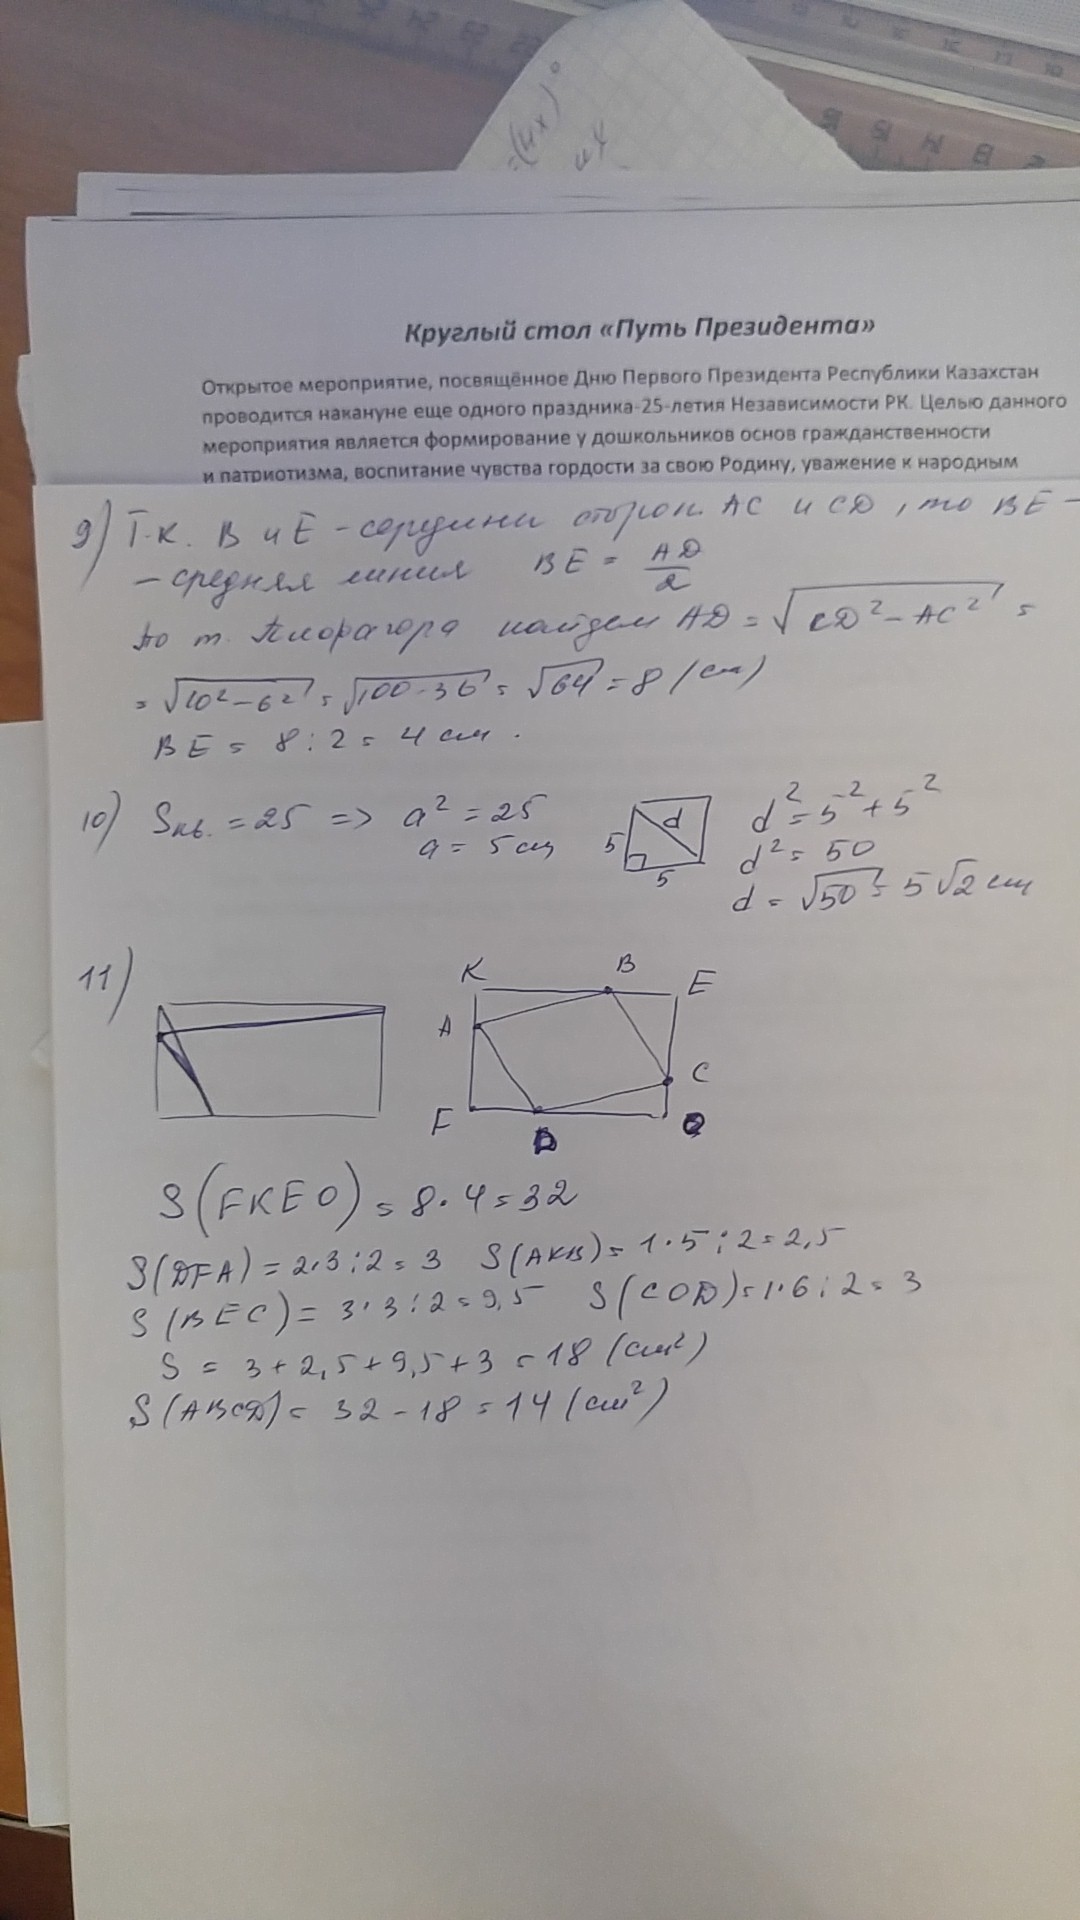 =(4x)°
4x
Круглый стол «Путь Президента»
Открытое мероприятие, посвящённое Дню Первого Президента Республики Казахстан
проводится накануне еще одного праздника-25-летия Независимости РК. Целью данного
мероприятия является формирование у дошкольников основ гражданственности
и патриотизма, воспитание чувства гордости за свою Родину, уважение к народным
9) Т.к. B и E - середины сторон AC и CD, то BE -
- средняя линия BE = AD/2
По т. Пифагора найдем AD = √(CD² - AC²) =
= √(10² - 6²) = √(100 - 36) = √64 = 8 (см)
BE = 8 : 2 = 4 см.
10) Sкв. = 25 => a² = 25
a = 5 см
5
d
5
d² = 5² + 5²
d² = 50
d = √50 = 5√2 см
11)
K B E
A
C
F D O
S(FKEO) = 8·4 = 32
S(DFA) = 2·3:2 = 3 S(AKB) = 1·5:2 = 2,5
S(BEC) = 3·3:2 = 9,5 S(COD) = 1·6:2 = 3
S = 3 + 2,5 + 9,5 + 3 = 18 (см²)
S(ABCD) = 32 - 18 = 14 (см²)